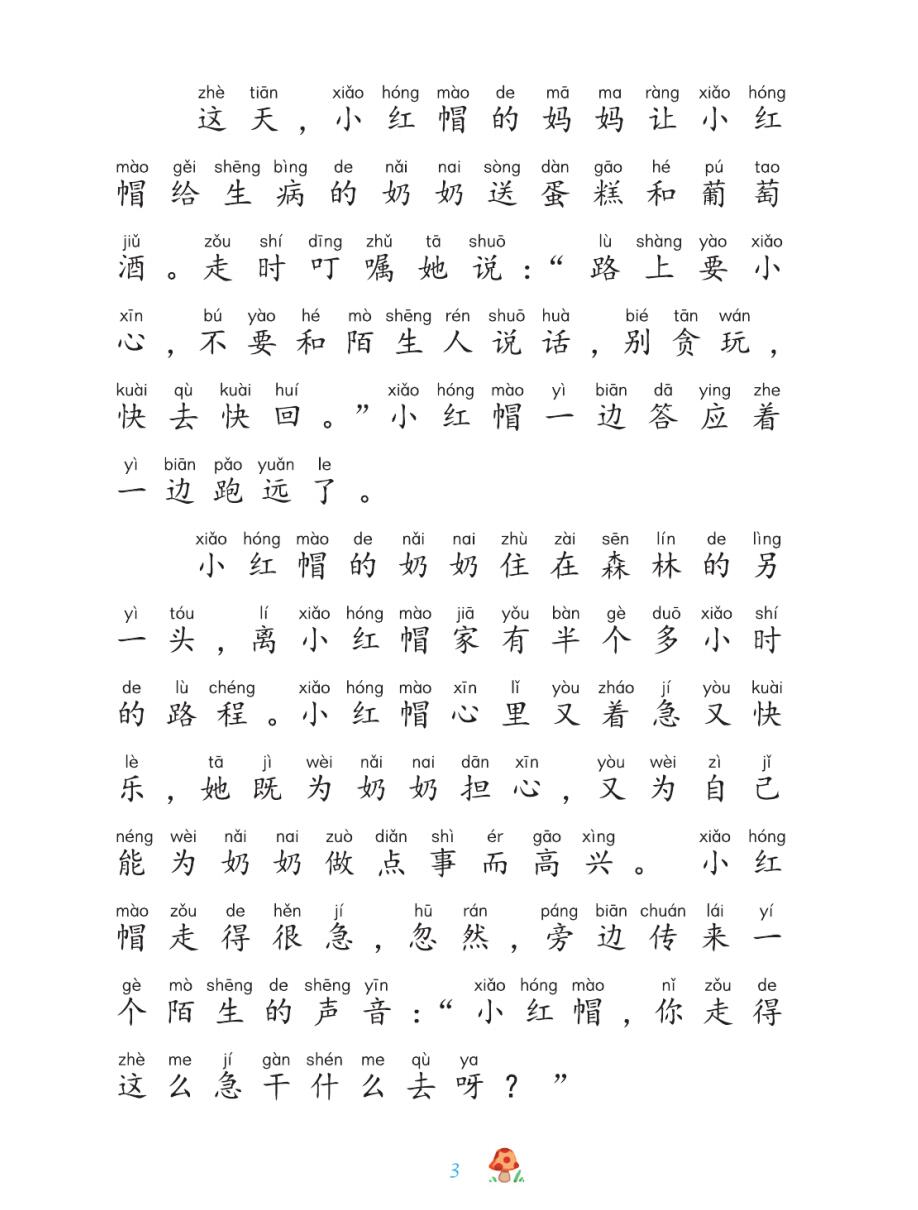 zhè tiān xiǎo hóng mào de mā ma ràng xiǎo hóng
这天，小红帽的妈妈让小红
mào gěi shēng bìng de nǎi nai sòng dàn gāo hé pú tao
帽给生病的奶奶送蛋糕和葡萄
jiǔ zǒu shí dīng zhǔ tā shuō lù shàng yào xiǎo
酒。走时叮嘱她说：“路上要小
xīn bú yào hé mò shēng rén shuō huà bié tān wán
心，不要和陌生人说话，别贪玩，
kuài qù kuài huí xiǎo hóng mào yì biān dā ying zhe
快去快回。”小红帽一边答应着
yì biān pǎo yuǎn le
一边跑远了。
xiǎo hóng mào de nǎi nai zhù zài sēn lín de lìng
小红帽的奶奶住在森林的另
yì tóu lí xiǎo hóng mào jiā yǒu bàn gè duō xiǎo shí
一头，离小红帽家有半个多小时
de lù chéng xiǎo hóng mào xīn lǐ yòu zháo jí yòu kuài
的路程。小红帽心里又着急又快
lè tā jì wèi nǎi nai dān xīn yòu wèi zì jǐ
乐，她既为奶奶担心，又为自己
néng wèi nǎi nai zuò diǎn shì ér gāo xìng xiǎo hóng
能为奶奶做点事而高兴。小红
mào zǒu de hěn jí hū rán páng biān chuán lái yí
帽走得很急，忽然，旁边传来一
gè mò shēng de shēng yīn xiǎo hóng mào nǐ zǒu de
个陌生的声音：“小红帽，你走得
zhè me jí gàn shén me qù ya
这么急干什么去呀？”
3